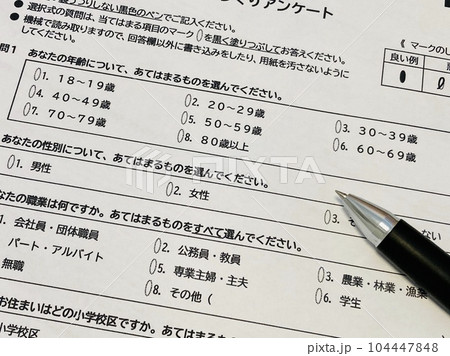 くりアンケート
うつりしない黒色のペンでご記入ください。
● 選択式の質問は、当てはまる項目のマーク0を黒く塗りつぶしてお答えください。
● 機械で読み取りますので、回答欄以外に書き込みをしたり、用紙を汚さないように
してください。
《 マークの
良い例
問1 あなたの年齢について、あてはまるものを選んでください。
1. 18～19歳
2. 20～29歳
3. 30～39歳
4. 40～49歳
5. 50～59歳
6. 60～69歳
7. 70～79歳
8. 80歳以上
あなたの性別について、あてはまるものを選んでください。
1. 男性
2. 女性
3. そ
ない
なたの職業は何ですか。あてはまるものをすべて選んでください。
1. 会社員・団体職員
2. 公務員・教員
3. 農業・林業・漁業
パート・アルバイト
5. 専業主婦・主夫
6. 学生
無職
8. その他（
お住まいはどの小学校区ですか。あてはまる
小学校区
PIXTA
104447848